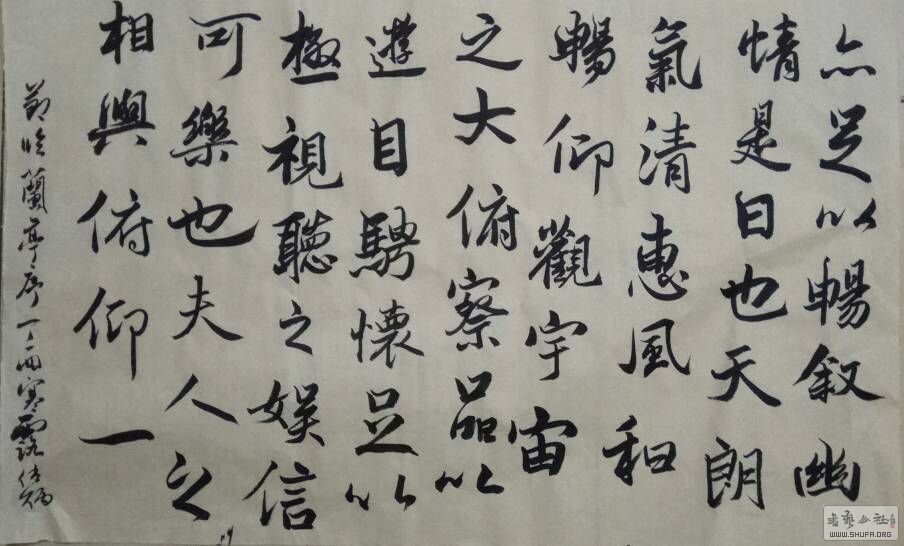 亦足以暢叙幽
情是日也天朗
氣清惠風和
暢仰觀宇宙
之大俯察品以
遊目騁懷足以
極視聽之娛信
可樂也夫人之
相與俯仰一
節臨蘭亭序丁酉寒露
書藝公社
WWW.SHUFA.ORG